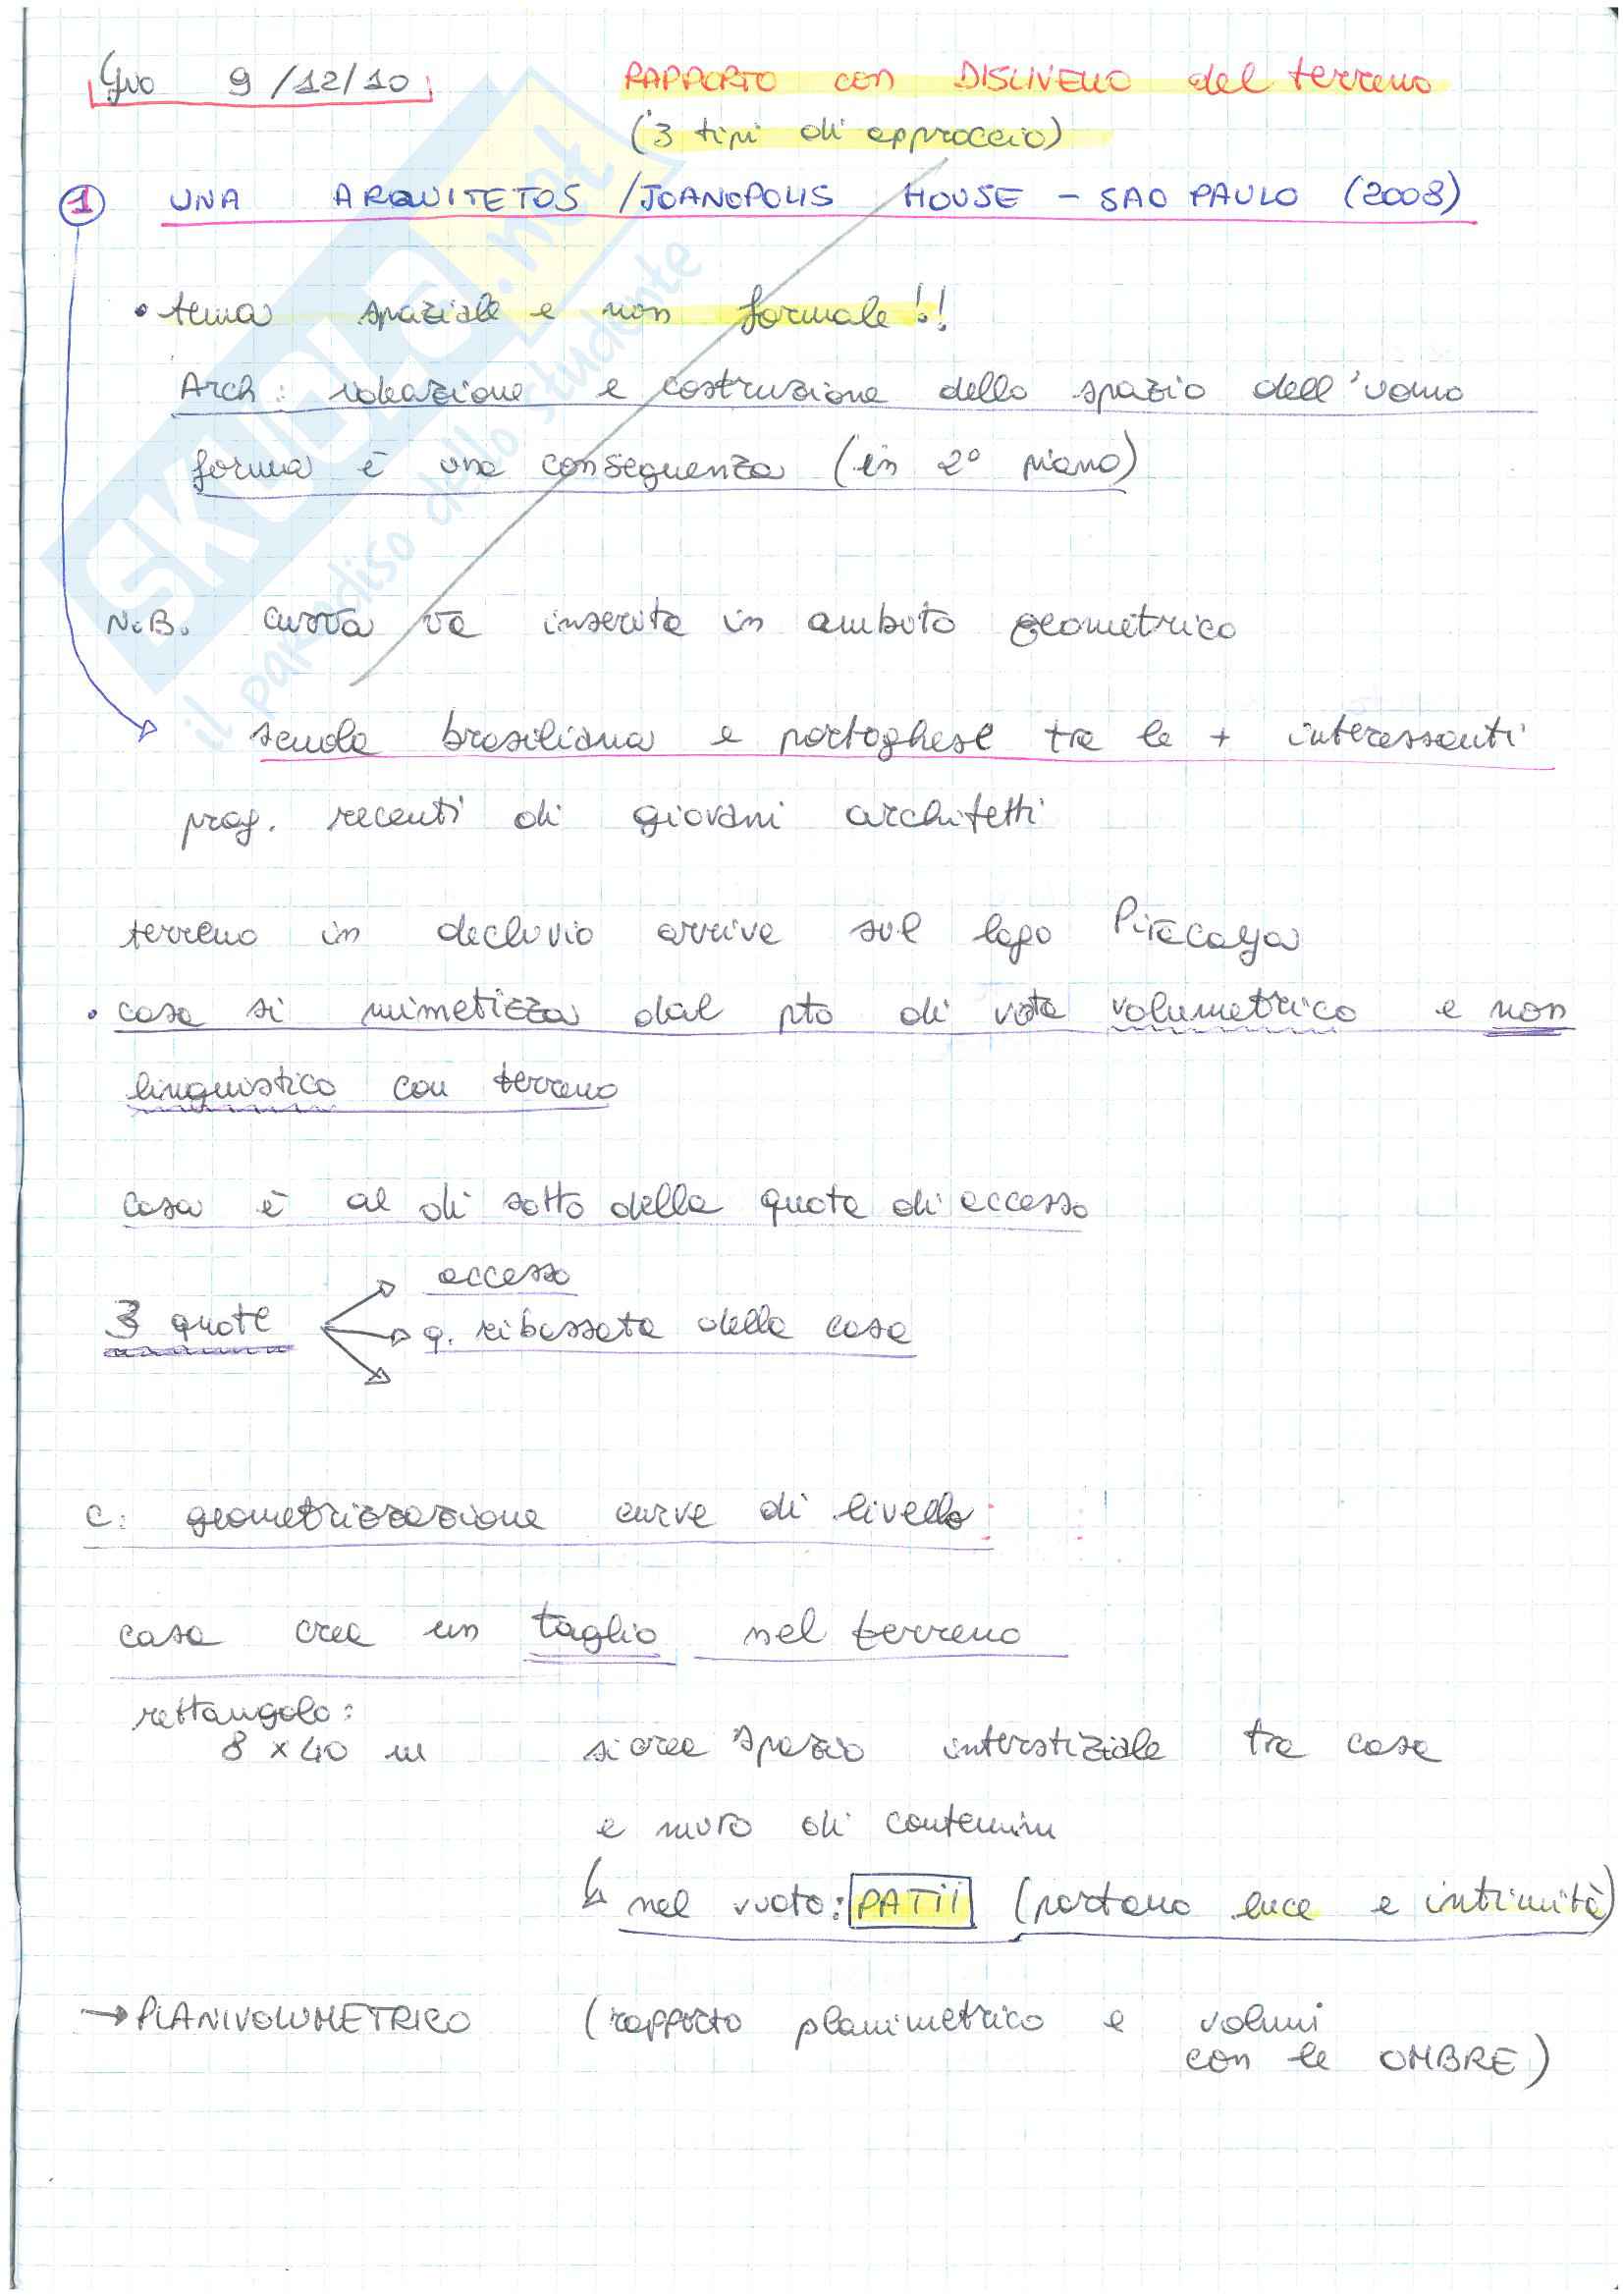 Giò 9/12/10
RAPPORTO con DISLIVELLO del terreno
(3 tipi di approccio)
1 UNA ARQUITETOS / JOANOPOLIS HOUSE - SAO PAULO (2008)
• tema spaziale e non formale!!
Arch: ideazione e costruzione dello spazio dell'uomo
forma è una conseguenza (in 2° piano)
N.B. curva va inserita in ambito geometrico
scuola brasiliana e portoghese tra le + interessanti
prog. recenti di giovani architetti
terreno in declivio arriva sul lago Piracaya
• casa si mimetizza dal pto di vsta volumetrico e non
linguistico con terreno
casa è al di sotto della quota di accesso
accesso
3 quote
q. ribassata della casa
C: geometrizzazione curve di livello:
casa crea un taglio nel terreno
rettangolo:
8 x 40 m
si crea spazio interstiziale tra casa
e muro di contenim
↳ nel vuoto: PATII (portano luce e intimità)
→ PLANIVOLUMETRICO (rapporto planimetrico e volumi
con le OMBRE)
SKUOLA.net
il paradiso dello studente